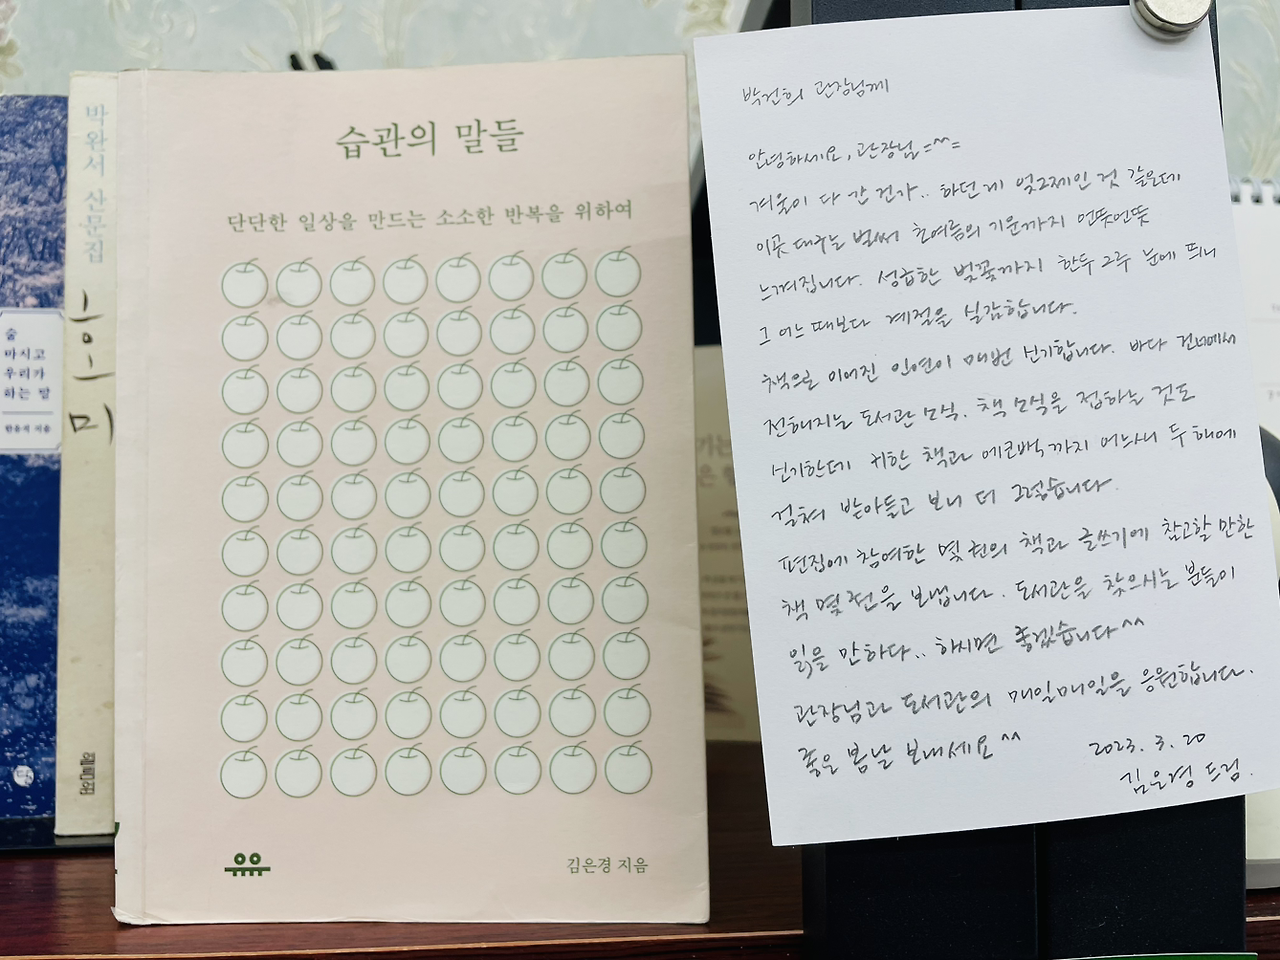 술
마시고
우리가
하는 말
한유석 지음
박완서 산문집
습관의 말들
단단한 일상을 만드는 소소한 반복을 위하여
김은경 지음
박건희 관장님께
안녕하세요, 관장님=^^=
겨울이 다 간 건가.. 하던게 엊그제인 것 같은데
이곳 대구는 벌써 초여름의 기운까지 언뜻언뜻
느껴집니다. 성급한 벚꽃까지 한두 그루 눈에 띄니
그 어느 때보다 계절을 실감합니다.
책으로 이어진 인연이 매번 신기합니다. 바다 건너에서
전해지는 도서관 소식. 책 소식을 접하는 것도
신기한데 귀한 책과 에코백까지 어느새 두 해에
걸쳐 받아들고 보니 더 그렇습니다.
편집에 참여한 몇 권의 책과 글쓰기에 참고할 만한
책 몇 권을 보냅니다. 도서관을 찾으시는 분들이
읽을 만하다.. 하시면 좋겠습니다^^
관장님과 도서관의 매일매일을 응원합니다.
좋은 봄날 보내세요^^
2023. 3. 20
김은경 드림.